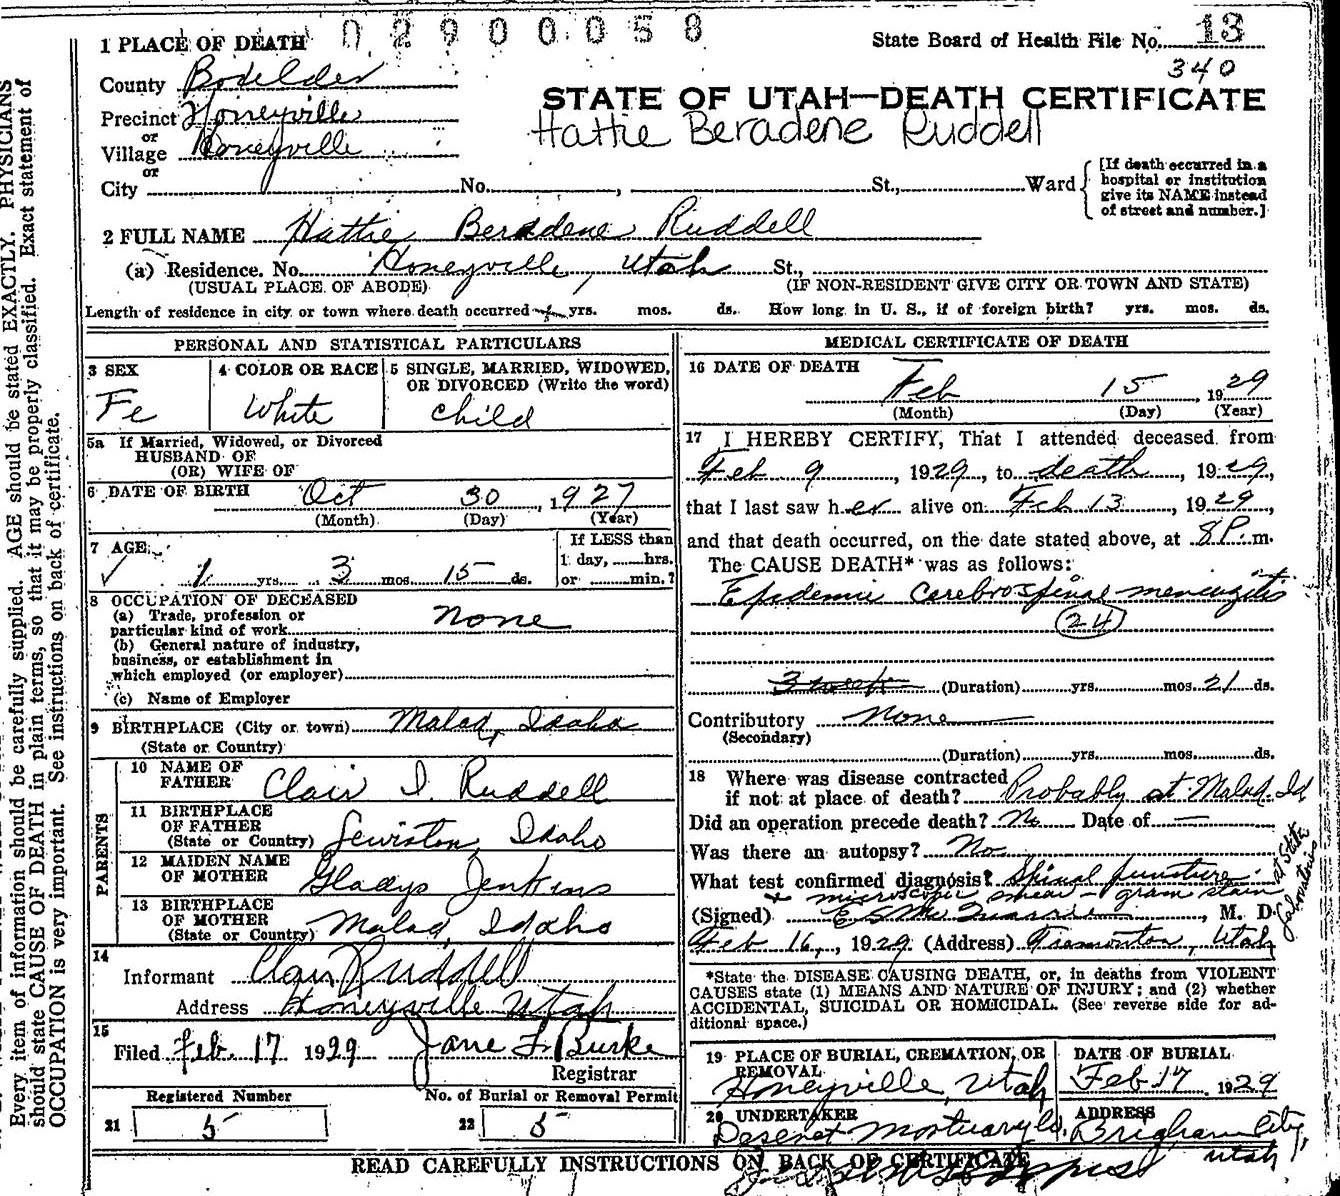 0 2 9 0 0 0 5 8
State Board of Health File No. 13
340
1 PLACE OF DEATH
County Boxelder
Precinct Honeyville
or
Village Honeyville
or
City No. , St., Ward
[If death occurred in a hospital or institution give its NAME instead of street and number.]
STATE OF UTAH—DEATH CERTIFICATE
Hattie Beradene Ruddell
2 FULL NAME Hattie Beradene Ruddell
(a) Residence. No. Honeyville, Utah St.,
(USUAL PLACE OF ABODE) (IF NON-RESIDENT GIVE CITY OR TOWN AND STATE)
Length of residence in city or town where death occurred yrs. mos. ds. How long in U. S., if of foreign birth? yrs. mos. ds.
PERSONAL AND STATISTICAL PARTICULARS
3 SEX
Fe
4 COLOR OR RACE
White
5 SINGLE, MARRIED, WIDOWED,
OR DIVORCED (Write the word)
child
5a If Married, Widowed, or Divorced
HUSBAND OF
(OR) WIFE OF
6 DATE OF BIRTH Oct 30, 1927
(Month) (Day) (Year)
7 AGE
1 yrs. 3 mos. 15 ds.
If LESS than
1 day, hrs.
or min.?
8 OCCUPATION OF DECEASED
(a) Trade, profession or
particular kind of work none
(b) General nature of industry,
business, or establishment in
which employed (or employer)
(c) Name of Employer
9 BIRTHPLACE (City or town) Malad, Idaho
(State or Country)
PARENTS
10 NAME OF
FATHER Clair I. Ruddell
11 BIRTHPLACE
OF FATHER
(State or Country) Lewiston, Idaho
12 MAIDEN NAME
OF MOTHER Gladys Jenkins
13 BIRTHPLACE
OF MOTHER
(State or Country) Malad, Idaho
14
Informant Clair Ruddell
Address Honeyville Utah
15
Filed Feb. 17 1929 Jane F. Burke
Registrar
Registered Number
21 5
No. of Burial or Removal Permit
22 5
MEDICAL CERTIFICATE OF DEATH
16 DATE OF DEATH
Feb 15 1929
(Month) (Day) (Year)
17 I HEREBY CERTIFY, That I attended deceased from
Feb 9, 1929, to death, 1929,
that I last saw her alive on Feb 13, 1929,
and that death occurred, on the date stated above, at 8 P. m.
The CAUSE DEATH* was as follows:
Epidemic cerebrospinal meningitis
24
3 weeks (Duration) yrs. mos. 21 ds.
Contributory none
(Secondary)
(Duration) yrs. mos. ds.
18 Where was disease contracted
if not at place of death? Probably at Malad, Id
Did an operation precede death? No Date of —
Was there an autopsy? No
What test confirmed diagnosis? Spinal puncture
& microscopic smear - gram stain
at State Laboratories
(Signed) E S McQuarrie, M. D.
Feb 16, 1929 (Address) Tremonton, Utah
*State the DISEASE CAUSING DEATH, or, in deaths from VIOLENT
CAUSES state (1) MEANS AND NATURE OF INJURY; and (2) whether
ACCIDENTAL, SUICIDAL OR HOMICIDAL. (See reverse side for ad-
ditional space.)
19 PLACE OF BURIAL, CREMATION, OR
REMOVAL
Honeyville, Utah
DATE OF BURIAL
Feb 17 1929
20 UNDERTAKER
Deseret Mortuary Co.
ADDRESS
Brigham City,
Utah
READ CAREFULLY INSTRUCTIONS ON BACK OF CERTIFICATE
Every item of information should be carefully supplied. AGE should be stated EXACTLY. PHYSICIANS
should state CAUSE OF DEATH in plain terms, so that it may be properly classified. Exact statement of
OCCUPATION is very important. See instructions on back of certificate.